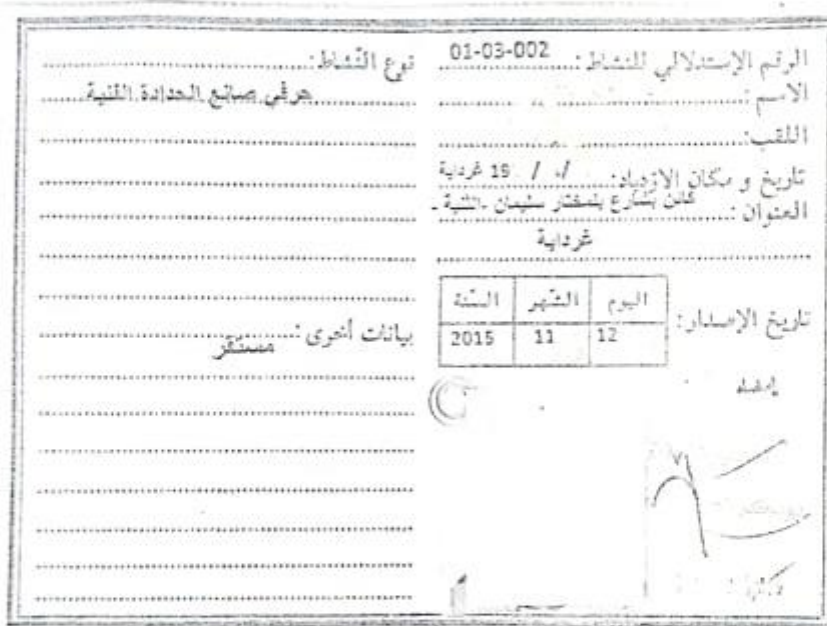 الرقم الإستدلالي للنشاط: 01-03-002
الاسم:
اللقب:
تاريخ و مكان الازدياد: / / 19 غرداية
العنوان: كائن بشارع بلمختار سليمان -الثنية -
غرداية
تاريخ الإصدار:
اليوم الشّهر السّنة
12 11 2015
إمضاء
نوع النّشاط:
حرفي صانع الحدادة الفنية
بيانات أخرى:
مستقر